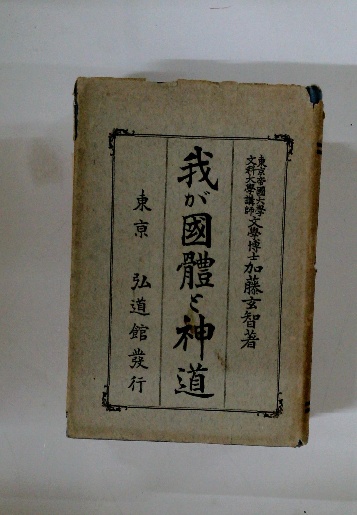 東京帝國大學
文科大學講師
文學博士加藤玄智著
我が國體と神道
東京 弘道館發行